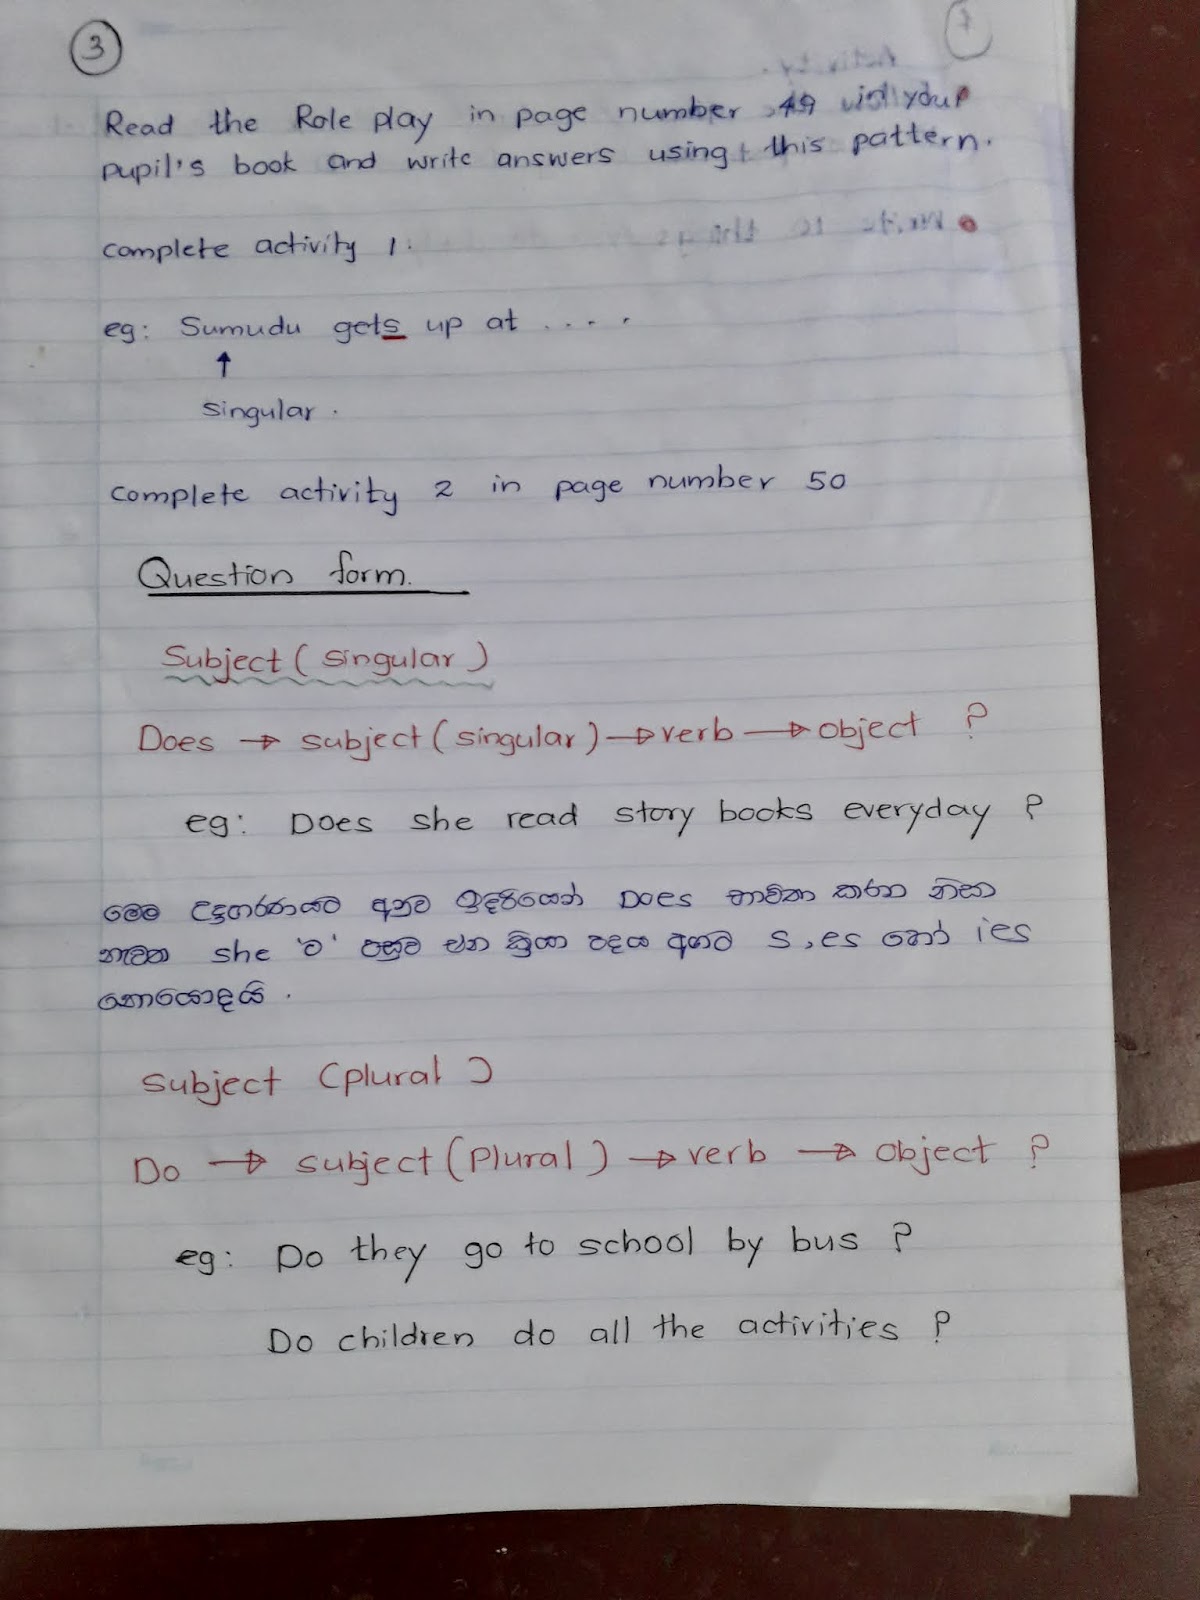 3
Read the Role play in page number 49 in your
pupil's book and write answers using this pattern.
complete activity 1.
eg: Sumudu gets up at ....
↑
singular.
complete activity 2 in page number 50
Question form.
Subject (singular)
Does → subject (singular) → verb → object ?
eg: Does she read story books everyday ?
මෙම උදාහරණයට අනුව ඉදිරියෙන් Does භාවිතා කරන නිසා
නැවත she 'ට' පසුව එන ක්‍රියා පදය අගට s, es හෝ ies
නොයොදයි.
subject (plural)
Do → subject (Plural) → verb → object ?
eg: Do they go to school by bus ?
Do children do all the activities ?